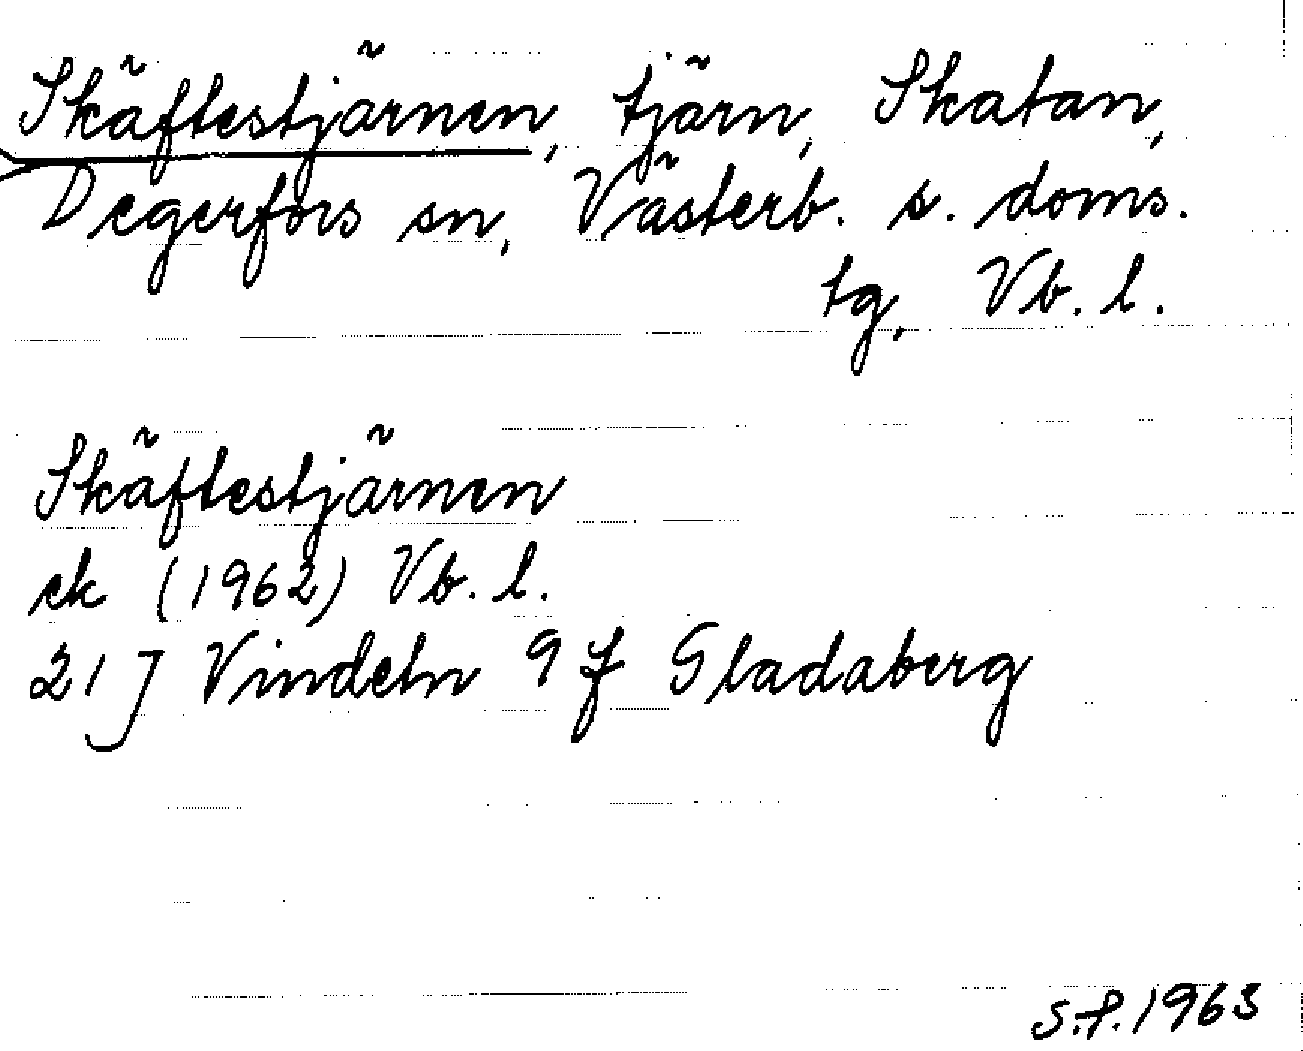 Skäftestjärnen, tjärn, Skatan,
Degerfors sn, Västerb. s. doms.
tg, Vb. l.
Skäftestjärnen
ek (1962) Vb. l.
21 J Vindeln 9 f Gladaberg
S.F. 1963